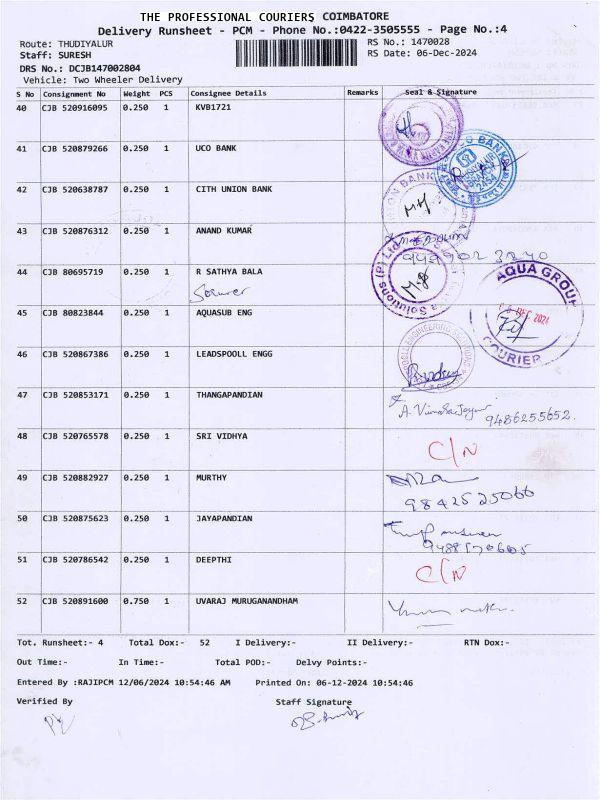 THE PROFESSIONAL COURIERS COIMBATORE
Delivery Runsheet - PCM - Phone No.:0422-3505555 - Page No.:4
Route: THUDIYALUR
RS No.: 1470028
Staff: SURESH
RS Date: 06-Dec-2024
DRS No.: DCJB147002804
Vehicle: Two Wheeler Delivery
S No Consignment No Weight PCS Consignee Details Remarks Seal & Signature
40 CJB 520916095 0.250 1 KVB1721
41 CJB 520879266 0.250 1 UCO BANK
42 CJB 520638787 0.250 1 CITH UNION BANK
43 CJB 520876312 0.250 1 ANAND KUMAR
44 CJB 80695719 0.250 1 R SATHYA BALA
AQUA GROUP
DEC 2024
COURIER
45 CJB 80823844 0.250 1 AQUASUB ENG
46 CJB 520867386 0.250 1 LEADSPOOLL ENGG
47 CJB 520853171 0.250 1 THANGAPANDIAN
9486255652
48 CJB 520765578 0.250 1 SRI VIDHYA C/N
49 CJB 520882927 0.250 1 MURTHY
9842525066
50 CJB 520875623 0.250 1 JAYAPANDIAN
51 CJB 520786542 0.250 1 DEEPTHI C/N
52 CJB 520891600 0.750 1 UVARAJ MURUGANANDHAM
Tot. Runsheet:- 4 Total Dox:- 52 I Delivery:- II Delivery:- RTN Dox:-
Out Time:- In Time:- Total POD:- Delvy Points:-
Entered By :RAJIPCM 12/06/2024 10:54:46 AM Printed On: 06-12-2024 10:54:46
Verified By Staff Signature